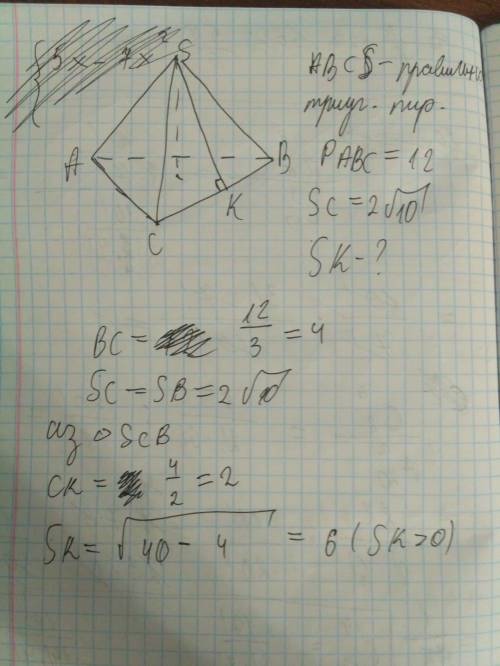 { 5x - 7x²
S
A
B
K
C
ABCS - правильн
триуг. пир.
P ABC = 12
SC = 2√10
SK - ?
BC = 12/3 = 4
SC = SB = 2√10
из △ SCB
CK = 4/2 = 2
SK = √40 - 4 = 6 (SK>0)